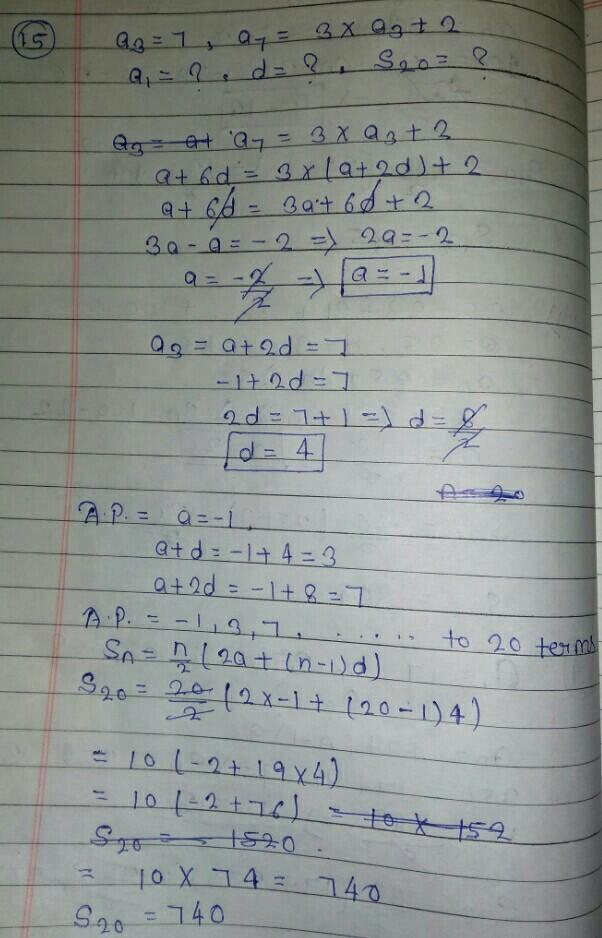 15 a3 = 7 , a7 = 3 × a3 + 2
a1 = ? , d = ? , S20 = ?
a3 = a+ a7 = 3 × a3 + 2
a + 6d = 3 × (a + 2d) + 2
a + 6d = 3a + 6d + 2
3a - a = -2 => 2a = -2
a = -2/2 => a = -1
a3 = a + 2d = 7
-1 + 2d = 7
2d = 7 + 1 => d = 8/2
d = 4
n = 20
A.P. = a = -1,
a + d = -1 + 4 = 3
a + 2d = -1 + 8 = 7
A.P. = -1, 3, 7, ...... to 20 terms
Sn = n/2 (2a + (n-1)d)
S20 = 20/2 (2×-1 + (20-1)4)
= 10 (-2 + 19×4)
= 10 (-2 + 76) = 10 × 152
S20 = 1520.
= 10 × 74 = 740
S20 = 740